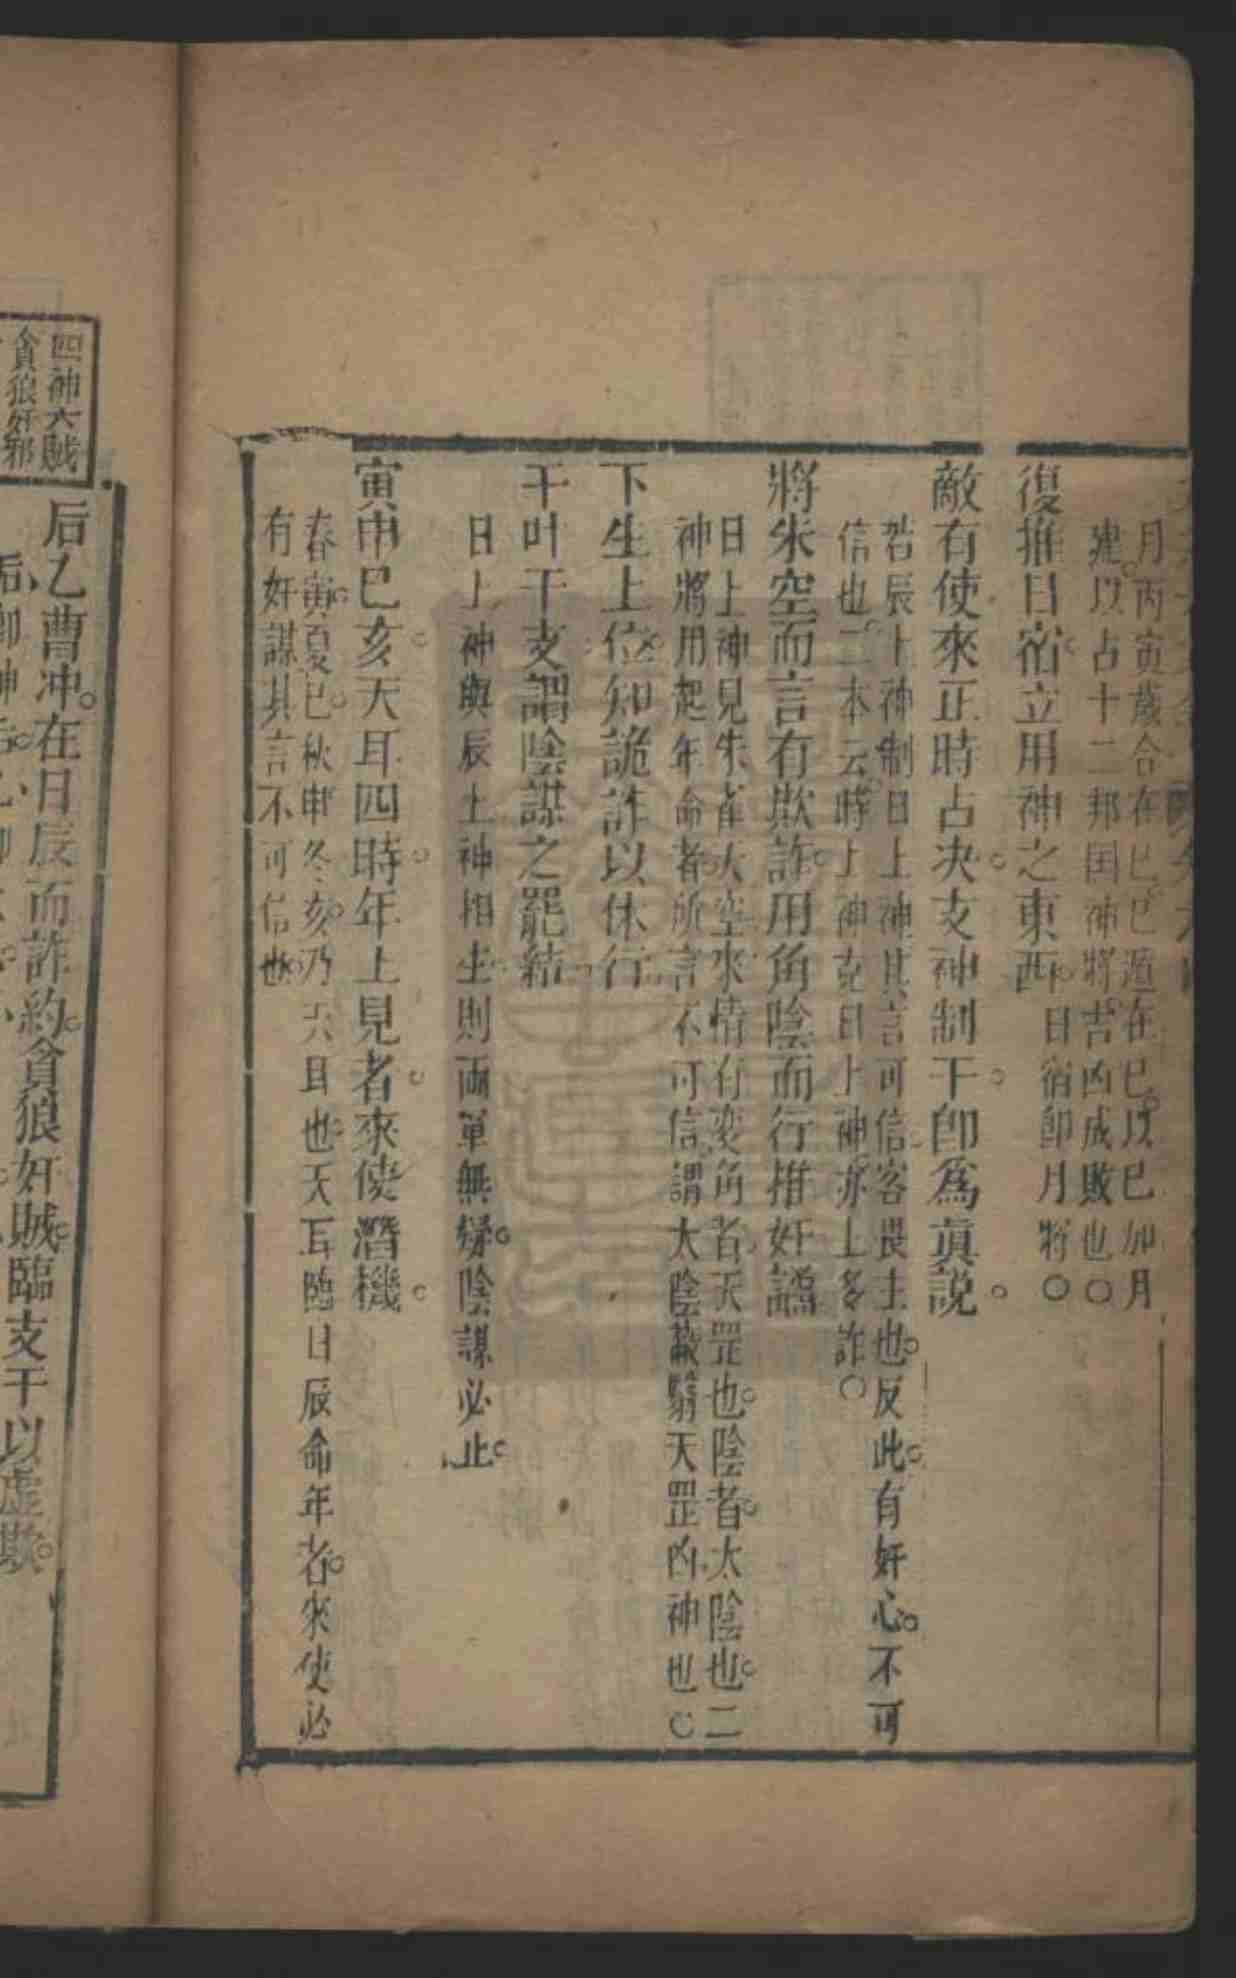 月丙寅歲合在巳巳遁在巳以巳加月
建以占十二邦国神將吉凶成敗也○
復推日宿立用神之東西日宿卽月將○
敵有使來正時占决支神制干卽爲眞説
若辰上神制日上神其言可信客畏主也反此有奸心不可
信也二本云時上神克日上神亦上多詐○
將朱空而言有欺詐用角陰而行推奸譎
日上神見朱雀天空來情有変角者天罡也陰者太陰也二
神將用起年命者所言不可信謂太陰蔽翳天罡凶神也○
下生上位知詭詐以休行
干叶干支謂陰謀之罷結
日上神與辰上神相生則兩軍無嫌陰謀必止
寅申巳亥天耳四時年上見者來使潛機
春寅夏巳秋申冬亥乃天耳也天耳臨日辰命年者來使必
有奸謀其言不可信也
四神六賊
貪狼奸邪
后乙曹冲在日辰而詐約貪狼奸賊臨支干以虛欺